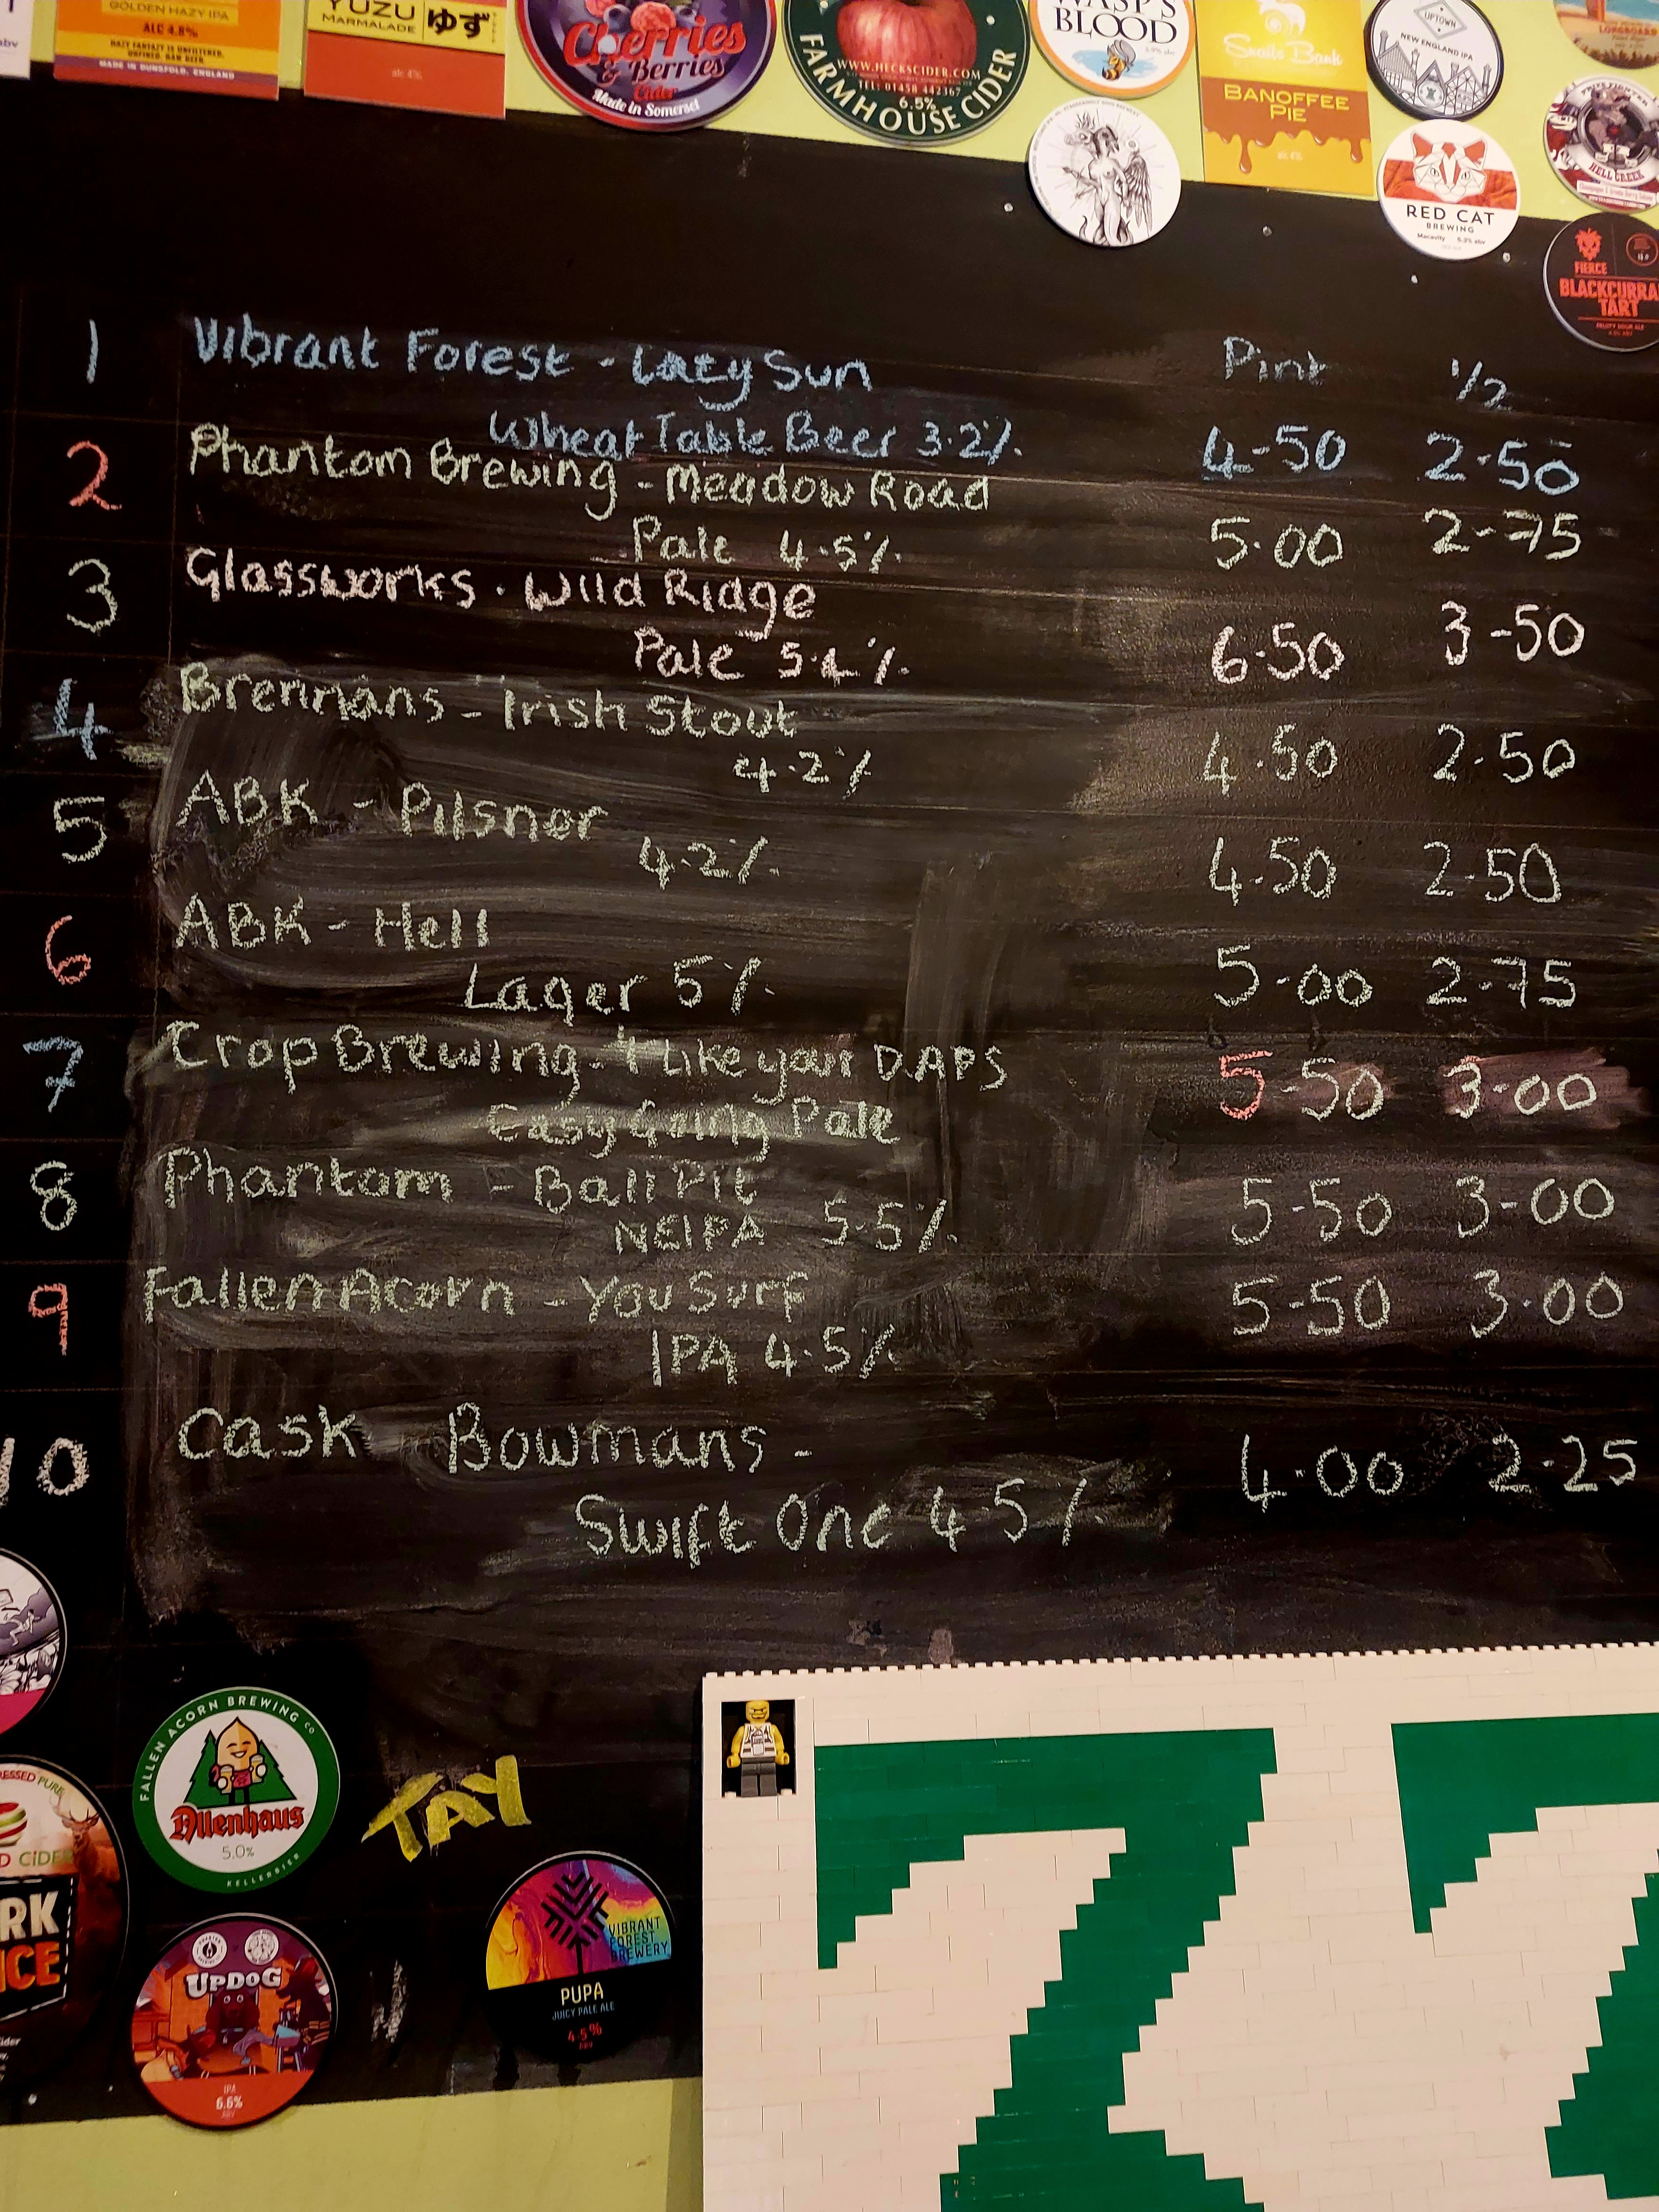 GOLDEN HAZY IPA
ALC 4.8%
HAZY FANTAZY IS UNFILTERED,
UNFINED, RAW BEER.
MADE IN DUNSFOLD, ENGLAND
YUZU
MARMALADE
ゆず
alc 4%
Cherries
& Berries
Cider
Made in Somerset
WWW.HECKSCIDER.COM
TEL: 01458 442367
6.5%
FARMHOUSE CIDER
WASP'S
BLOOD
Snails Bank
BANOFFEE
PIE
UPTOWN
NEW ENGLAND IPA
LONGBOARD
RED CAT
BREWING
Macavity 5.3% abv
HELL CREEK
FIERCE
BLACKCURRA
TART
FRUITY SOUR ALE
Pint 1/2
1 Vibrant Forest - Lazy Sun
Wheat Table Beer 3.2% 4-50 2-50
2 Phantom Brewing - Meadow Road
Pale 4.5% 5.00 2-75
3 Glassworks. Wild Ridge
Pale 6.50 3-50
4 Brennans - Irish Stout
4.2% 4.50 2.50
5 ABK - Pilsner
4.2% 4.50 2.50
6 ABK - Hell
Lager 5% 5-00 2-75
7 Crop Brewing - I Like your DAPS 5-50 3-00
Easy Going Pale
8 Phantom - Ball Pit
NEIPA 5.5% 5-50 3-00
9 Fallen Acorn - You Surf 5-50 3.00
IPA 4.5%
10 Cask - Bowmans - 4.00 2.25
Swift One 4.5%
FALLEN ACORN BREWING CO
Allenhaus
5.0%
KELLERBIER
TAY
ESSED PURE
D CiDER
RK
ICE
UPDOG
IPA
6.6%
ABV
VIBRANT
FOREST
BREWERY
PUPA
JUICY PALE ALE
4.5%
ABV